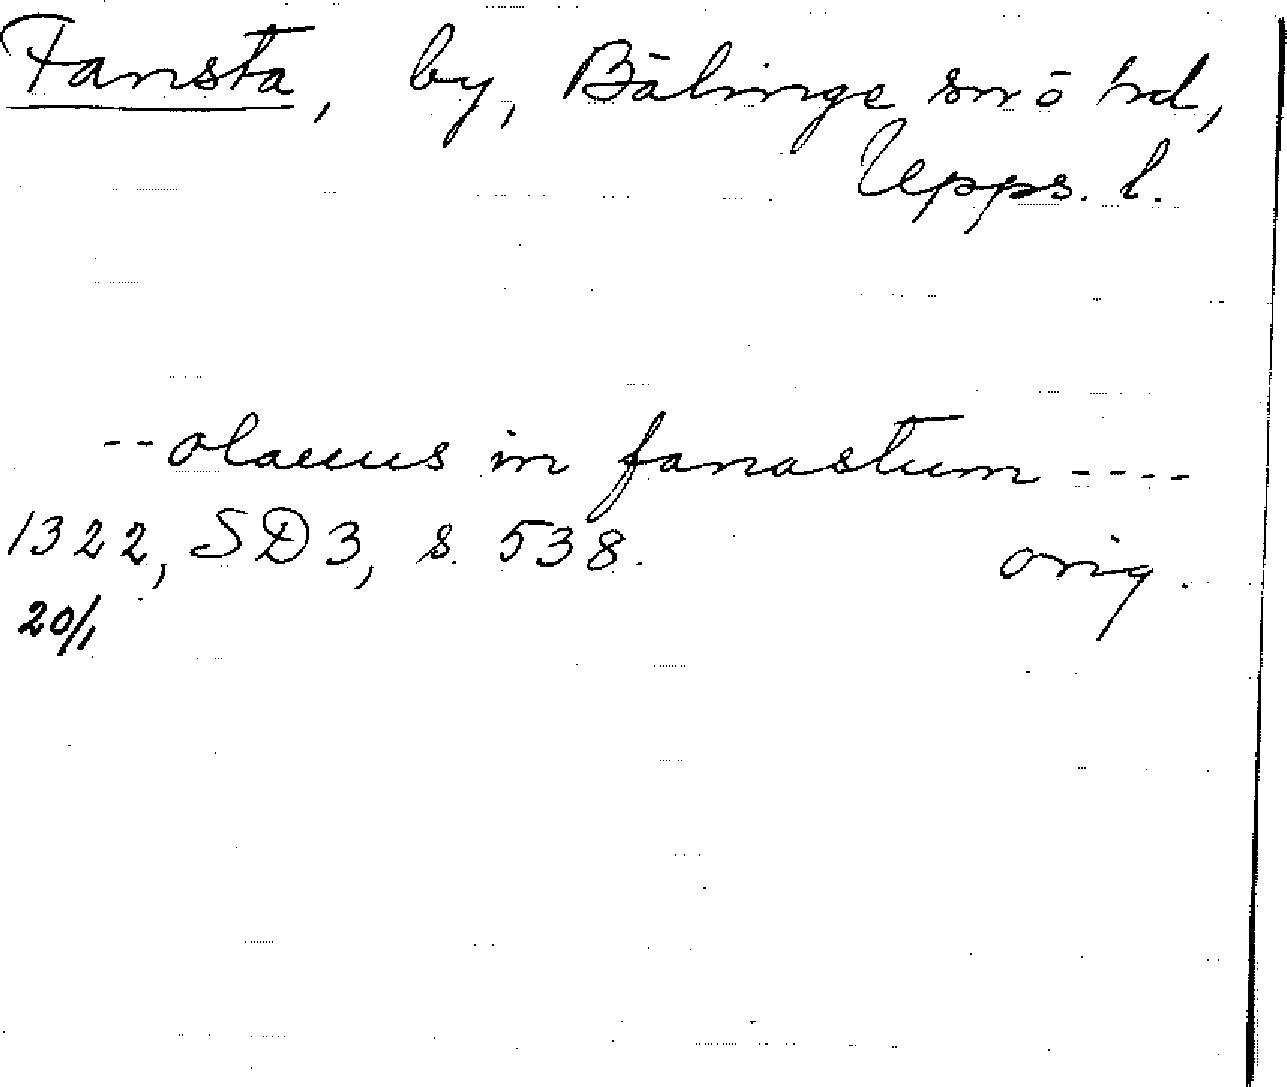 Fansta, by, Bälinge sn ō hd,
Upps. l.
--olauus in fanastum ----
1322, SD3, s. 538. orig.
20/1